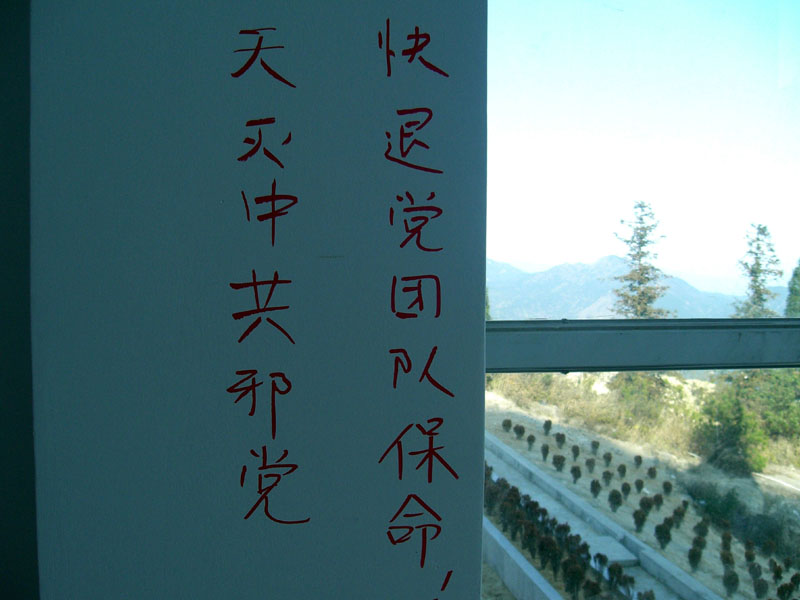 天灭中共邪党
快退党团队保命!